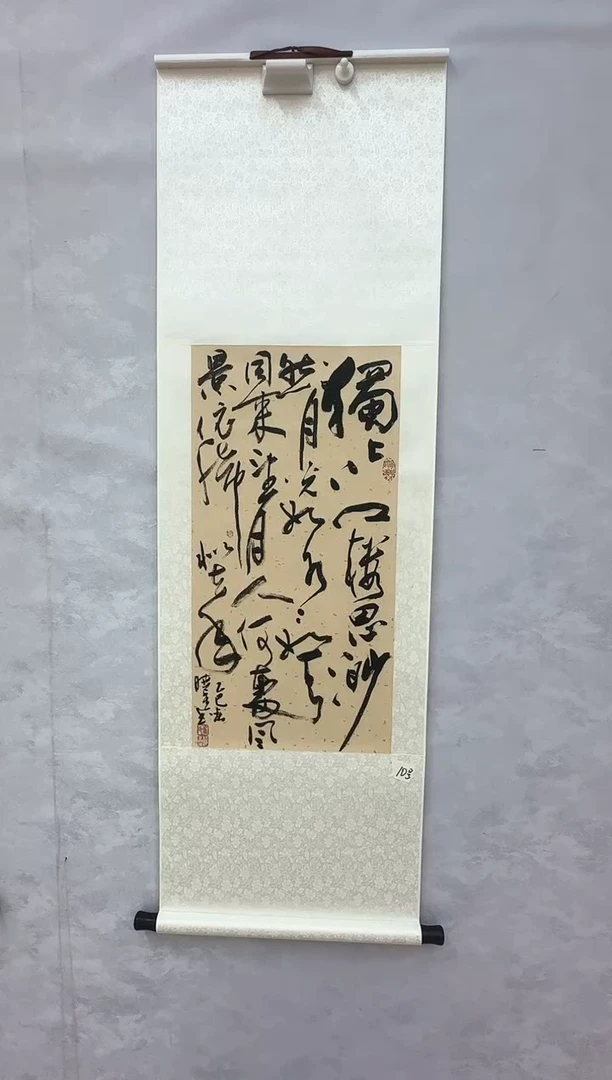 獨上江樓思渺
然月光如水水如天
同來望月人何處風
景依稀似去年
乙巳
103